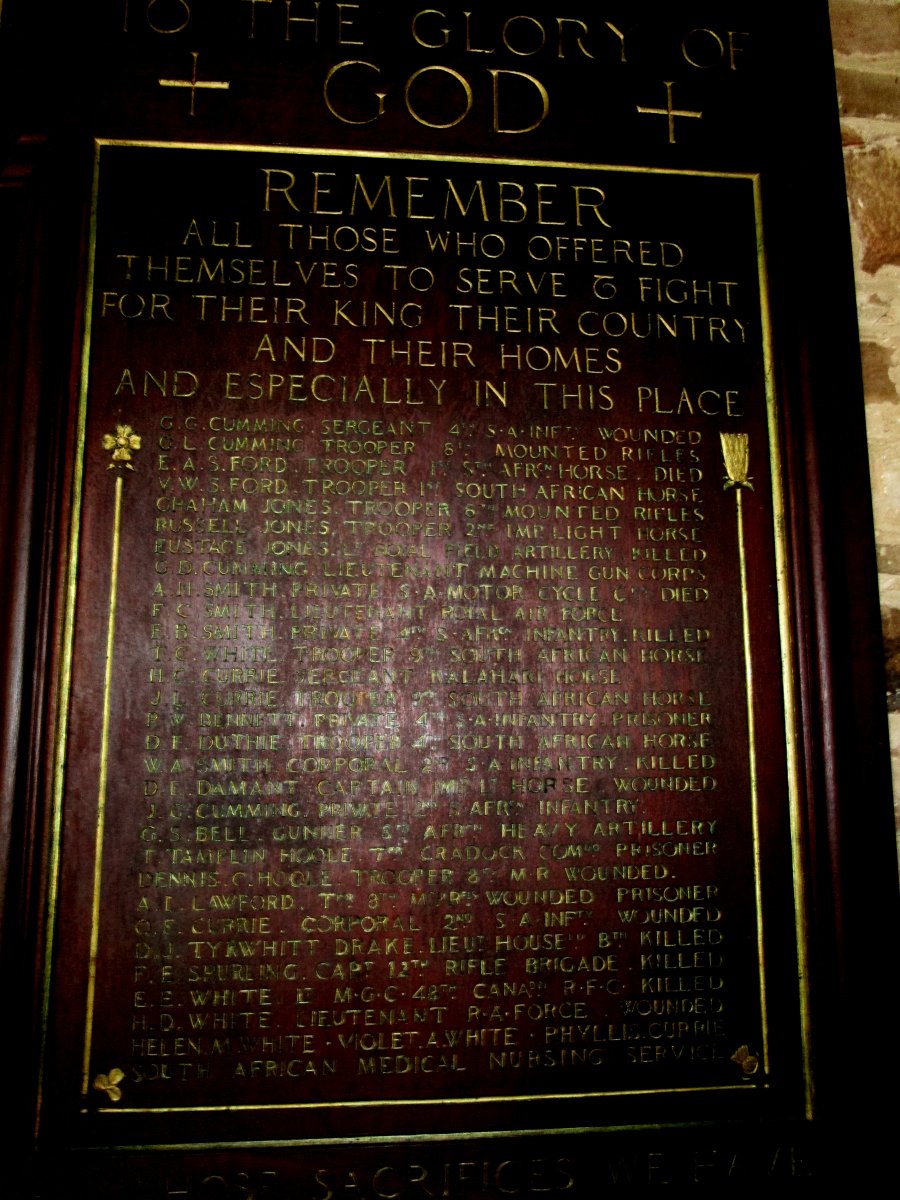 TO THE GLORY OF
GOD
REMEMBER
ALL THOSE WHO OFFERED
THEMSELVES TO SERVE & FIGHT
FOR THEIR KING THEIR COUNTRY
AND THEIR HOMES
AND ESPECIALLY IN THIS PLACE
G.G.CUMMING. SERGEANT 4TH S.A.INFTY WOUNDED
CUMMING TROOPER 8TH MOUNTED RIFLES
E.A.S.FORD.TROOPER 1ST STH AFRCN HORSE. DIED
V.W.S.FORD.TROOPER 1ST SOUTH AFRICAN HORSE
GRAHAM JONES. TROOPER 6TH MOUNTED RIFLES
RUSSELL JONES. TROOPER 2ND IMP LIGHT HORSE
EUSTACE JONES. LT ROYAL FIELD ARTILLERY. KILLED
G.D.CUMMING. LIEUTENANT MACHINE GUN CORPS
A.H.SMITH. PRIVATE. S.A.MOTOR CYCLE DIED
F.C. SMITH. LIEUTENANT ROYAL AIR FORCE
E.B.SMITH. PRIVATE 4TH S.AFRCN INFANTRY. KILLED
WHITE. TROOPER 9TH SOUTH AFRICAN HORSE
H.C. CURRIE. SERGEANT KALAHARI HORSE
J.L. CURRIE. TROOPER SOUTH AFRICAN HORSE
P.W.BENNETT. PRIVATE 4TH S.A.INFANTRY. PRISONER
D.F. DUTHIE. TROOPER 4TH SOUTH AFRICAN HORSE
W.A.SMITH. CORPORAL 2ND S.A.INFANTRY. KILLED
D.E.DAMANT. CAPTAIN IMP LT HORSE. WOUNDED
CUMMING. PRIVATE 2ND S.AFRCN INFANTRY.
G.S.BELL. GUNNER STH AFRCN HEAVY ARTILLERY
T.TAMPLIN HOOLE. 7TH CRADOCK COMDO PRISONER
DENNIS. C.HOOLE. TROOPER 8TH M.R. WOUNDED.
LAWFORD. TPR 8TH WOUNDED PRISONER
CURRIE. CORPORAL 2ND S.A.INFTY WOUNDED
D.J. TYRWHITT DRAKE. LIEUT. HOUSEHD BTN KILLED
F.E.SPURLING. CAPT 12TH RIFLE BRIGADE. KILLED
E.E.WHITE. LT M.G.C.48TH CANAN R.F.C. KILLED
H.D.WHITE. LIEUTENANT R.A.FORCE. WOUNDED
HELEN.M.WHITE. VIOLET.A.WHITE. PHYLLIS.CURRIE
SOUTH AFRICAN MEDICAL NURSING SERVICE
SACRIFICES WE HAVE